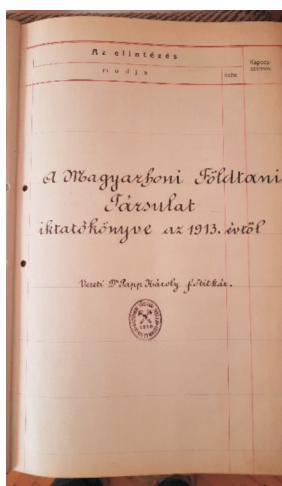 Az elintézés
Kapocs
módja
A Magyarhoni Földtani
Társulat
iktatókönyve az 1913. évtől
Vezeti Dr Papp Károly főtitkár.